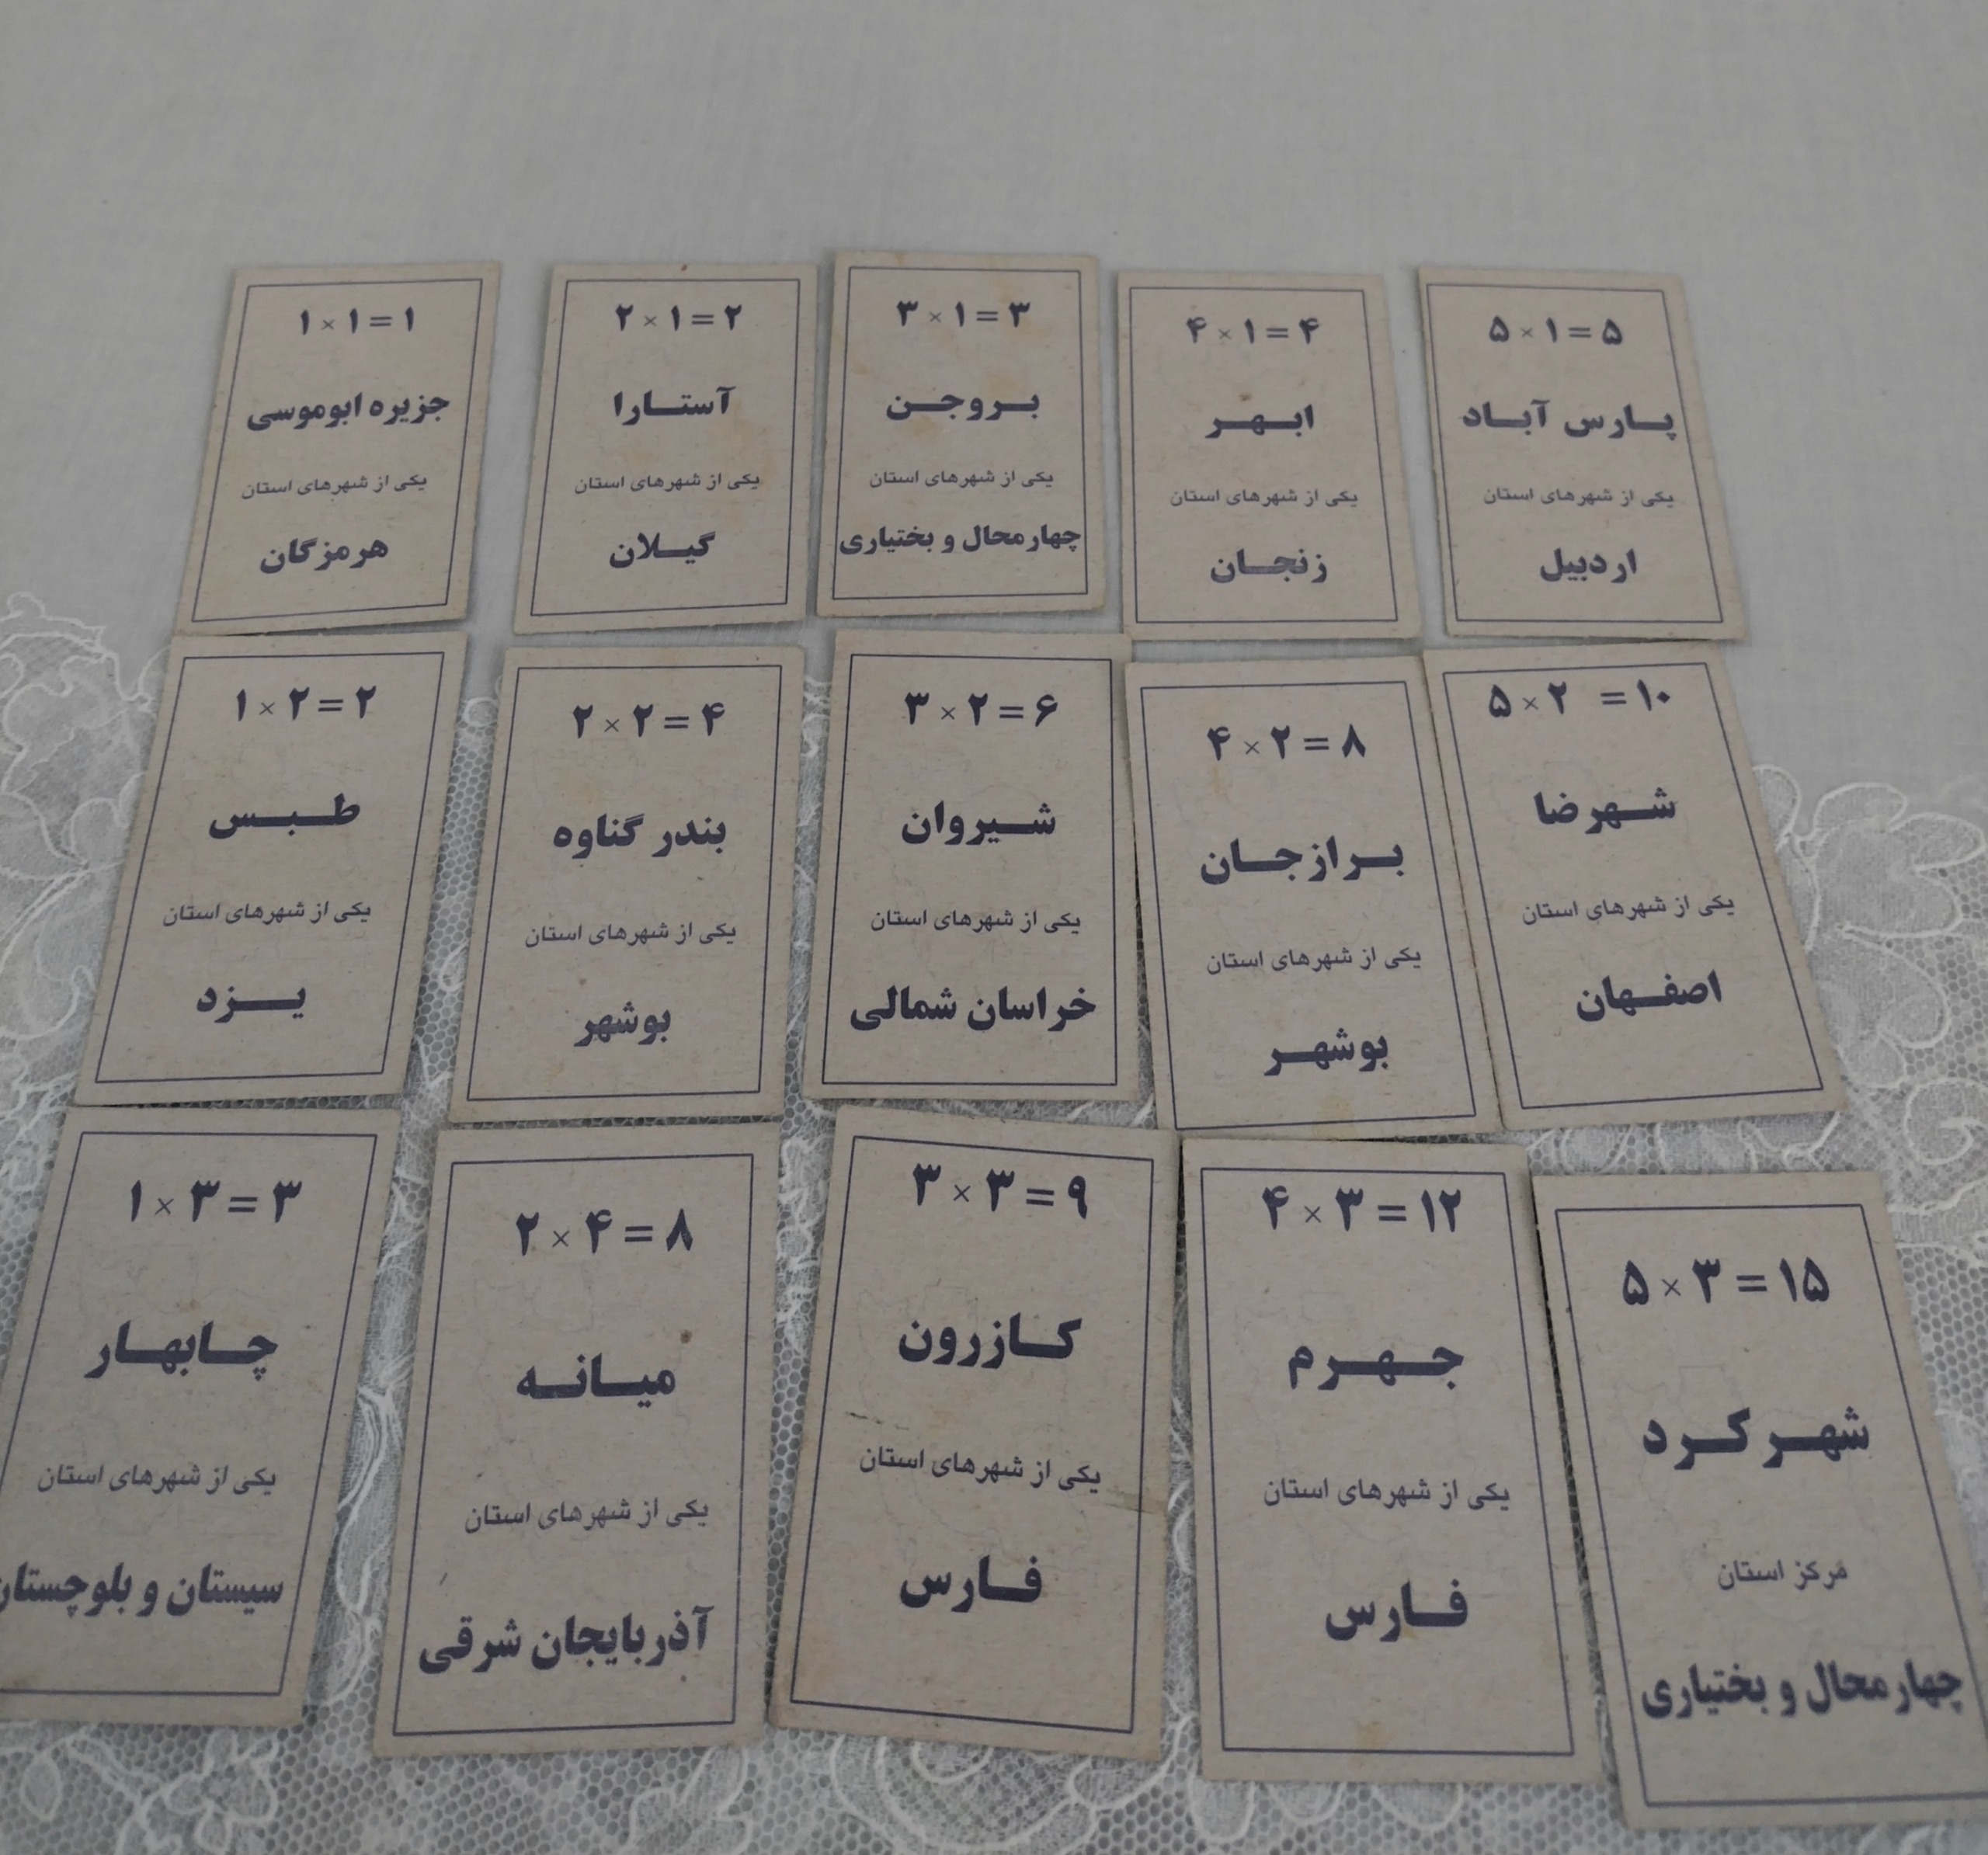 ۱ × ۱ = ۱
جزیره ابوموسی
یکی از شهرهای استان
هرمزگان
۲ × ۱ = ۲
آستارا
یکی از شهرهای استان
گیلان
۳ × ۱ = ۳
بروجن
یکی از شهرهای استان
چهارمحال و بختیاری
۴ × ۱ = ۴
ابهر
یکی از شهرهای استان
زنجان
۵ × ۱ = ۵
پارس آباد
یکی از شهرهای استان
اردبیل
۱ × ۲ = ۲
طبس
یکی از شهرهای استان
یزد
۲ × ۲ = ۴
بندر گناوه
یکی از شهرهای استان
بوشهر
۳ × ۲ = ۶
شیروان
یکی از شهرهای استان
خراسان شمالی
۴ × ۲ = ۸
برازجان
یکی از شهرهای استان
بوشهر
۵ × ۲ = ۱۰
شهرضا
یکی از شهرهای استان
اصفهان
۱ × ۳ = ۳
چابهار
یکی از شهرهای استان
سیستان و بلوچستان
۲ × ۴ = ۸
میانه
یکی از شهرهای استان
آذربایجان شرقی
۳ × ۳ = ۹
کازرون
یکی از شهرهای استان
فارس
۴ × ۳ = ۱۲
جهرم
یکی از شهرهای استان
فارس
۵ × ۳ = ۱۵
شهرکرد
مرکز استان
چهارمحال و بختیاری